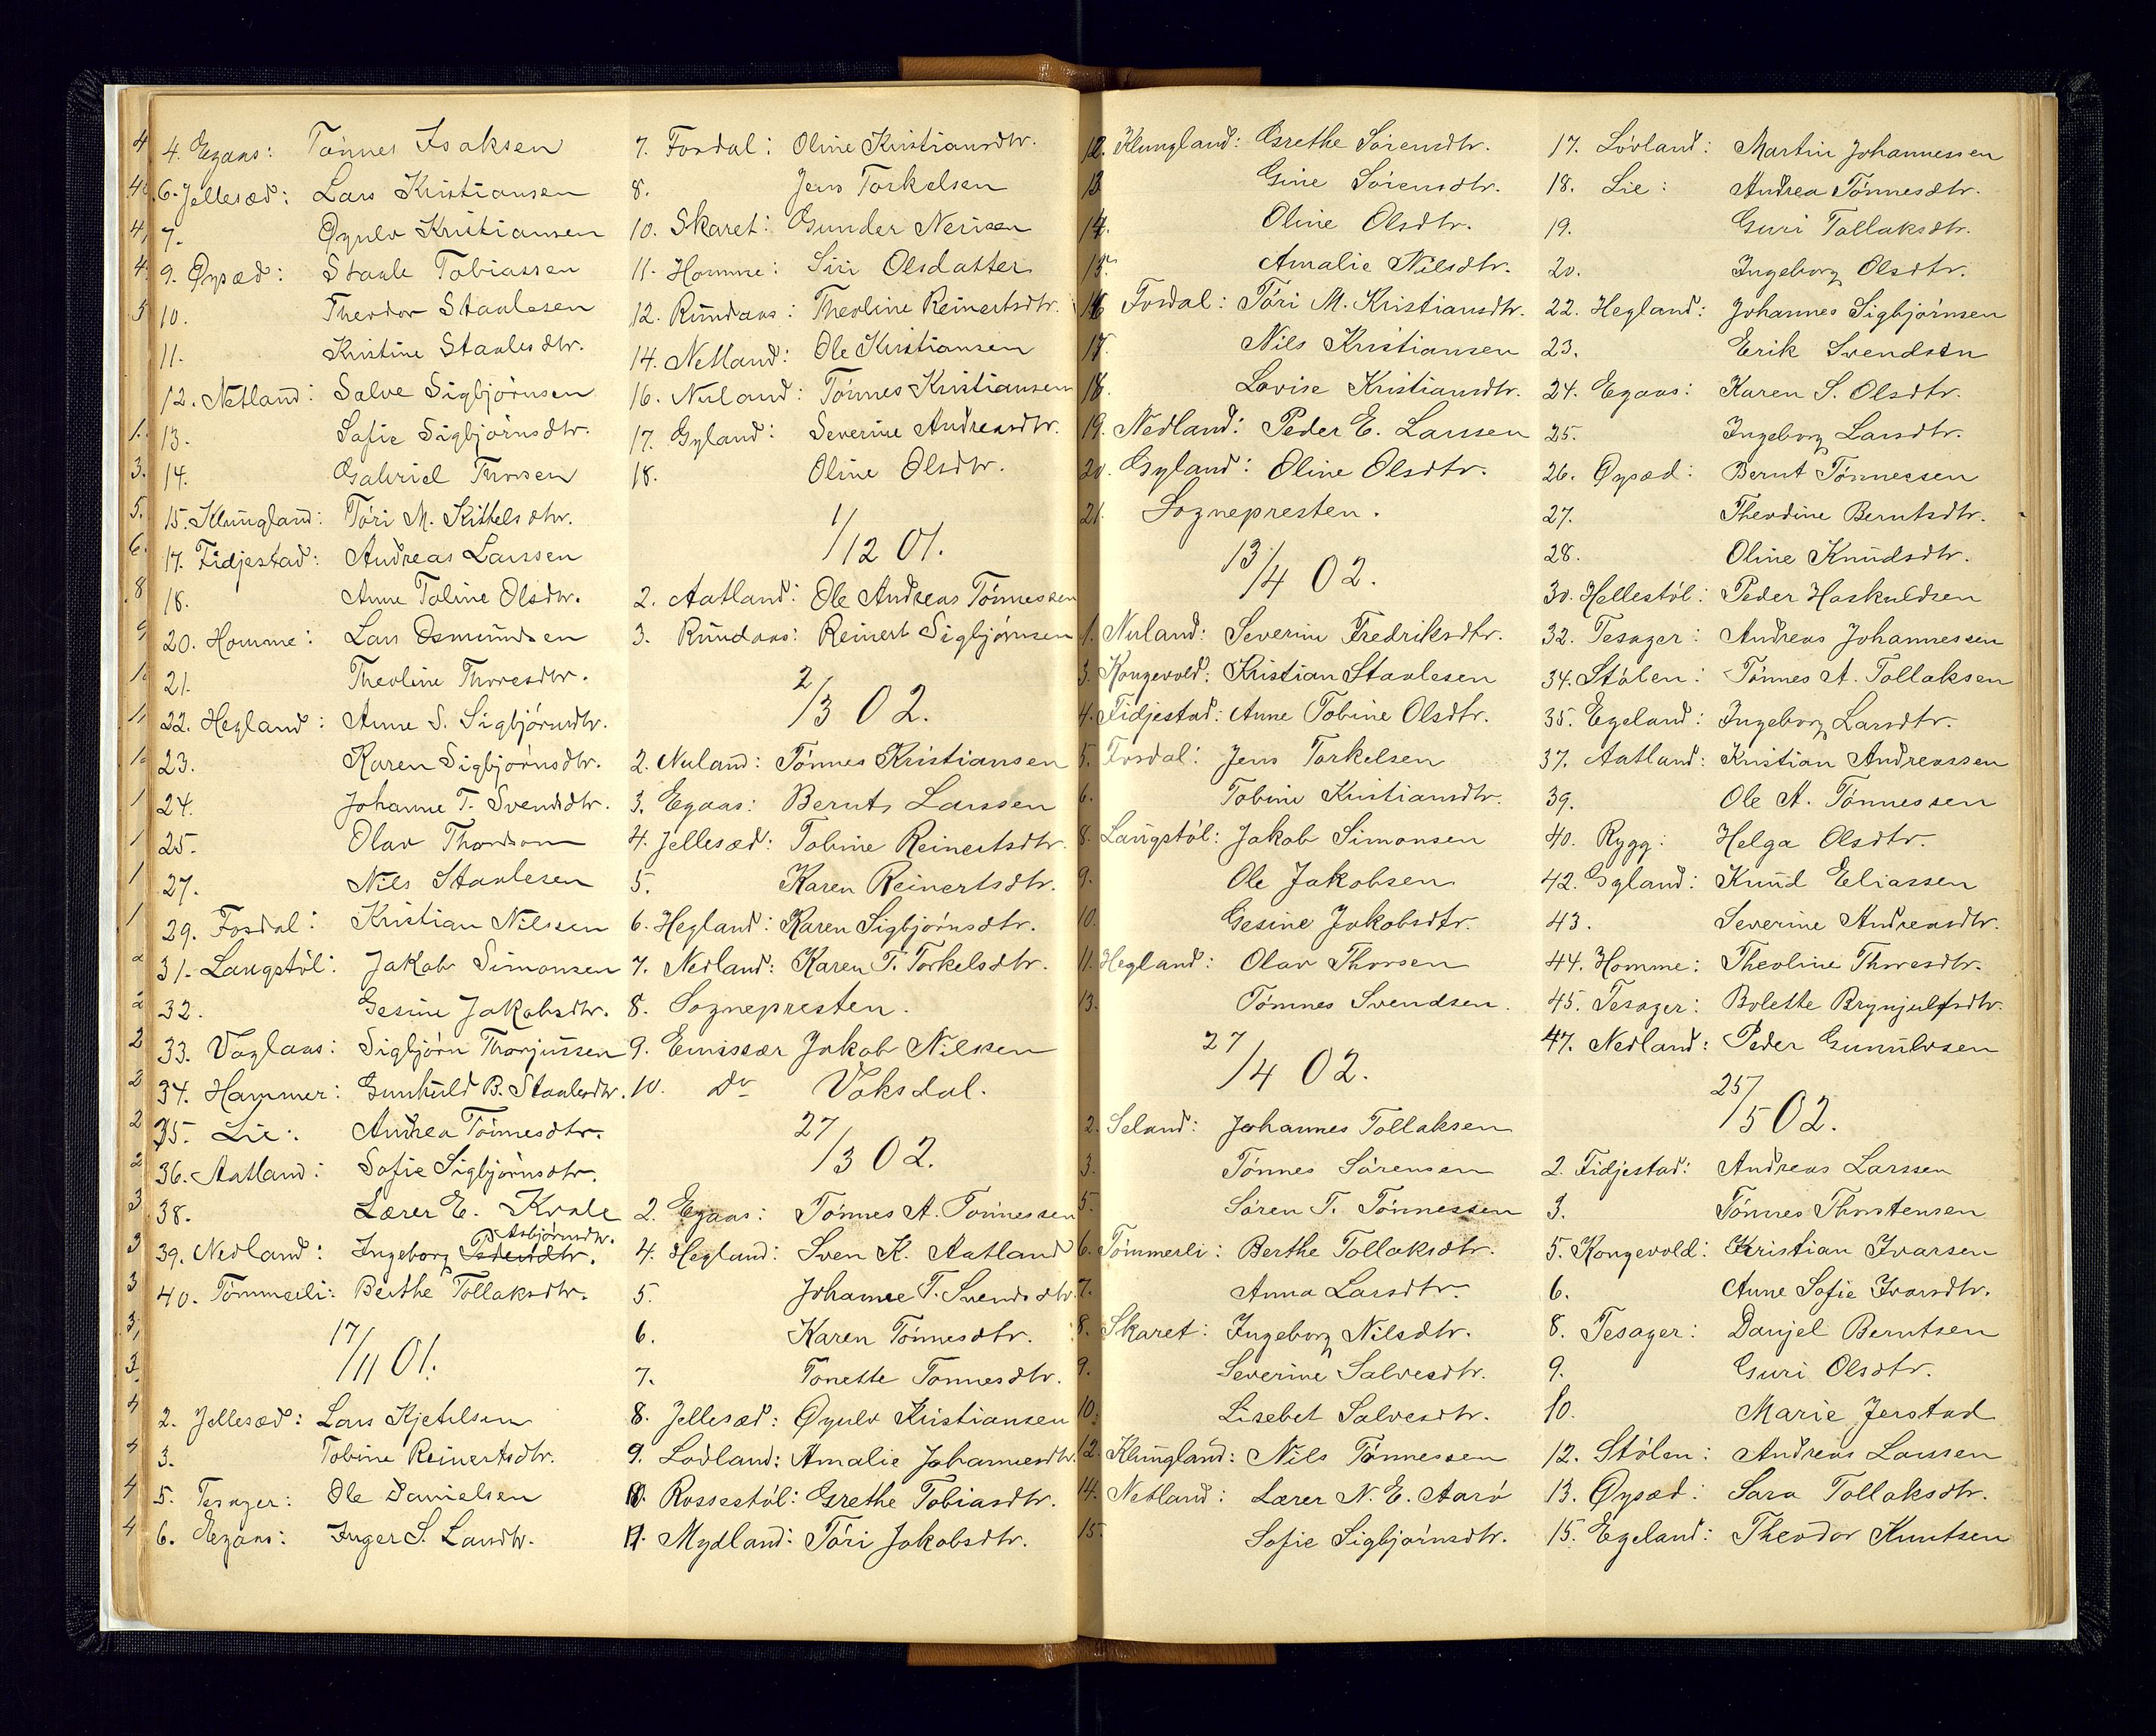 4. Egaas: Tønnes Isaksen
6. Jellesæd: Lars Kristiansen
7. Øyulv Kristiansen
9. Øysæd: Staale Tobiassen
10. Theodor Staalesen
11. Kristine Staalesdtr.
12. Netland: Salve Sigbjørnsen
13. Sofie Sigbjørnsdtr.
14. Gabriel Thorsen
15. Klungland: Tóri M. Kittelsdtr.
17. Fidjestad: Andreas Larssen
18. Anne Toline Olsdtr.
20. Homme: Lars Osmundsen
21. Theoline Thoresdtr.
22. Hegland: Anne S. Sigbjørnsdtr.
23. Karen Sigbjørnsdtr.
24. Johanne T. Svendsdtr.
25. Olav
27. Nils Staalesen
29. Fosdal: Kristian Nilssen
31. Langstøl: Jakob Simonsen
32. Gesine Jakobsdtr.
33. Vaglaas: Sigbjørn Thorjussen
34. Hammer: Gunhuld B. Staalesdtr.
35. Lie: Andrea Tønnesdtr.
36. Aatland: Sofie Sigbjørnsdtr.
38. Lærer E. Kvale
Asbjørnsdtr.
39. Nedland: Ingeborg Pedersdtr.
40. Tømmerli: Berthe Tollaksdtr.
17/11 01.
2. Jellesæd: Lars Kjetilsen
3. Tobine Reinertsdtr.
5. Tesager: Ole Danielsen
6. Aegaas: Inger S. Larsdtr.
7. Fosdal: Oline Kristiansdtr.
8. Jens Torkelsen
10. Skaret: Gunder Nerisen
11. Homme: Siri Olsdatter
12. Rundaas: Theoline Reinertsdtr.
14. Netland: Ole Kristiansen
16. Nuland: Tønnes Kristiansen
17. Gyland: Severine Andreasdtr.
18. Oline Olsdtr.
1/12 01.
2. Aatland: Ole Andreas Tønnessen
3. Rundaas: Reinert Sigbjørnsen
2/3 02.
2. Nuland: Tønnes Kristiansen
3. Egaas: Bernt Larssen
4. Jellesæd: Tobine Reinertsdtr.
5. Karen Reinertsdtr.
6. Hegland: Karen Sigbjørnsdtr.
7. Nedland: Karen T. Torkelsdtr.
8. Sognepresten.
9. Emissær Jakob Nilsen
10. Do Voksdal.
27/3 02.
2. Egaas: Tønnes A. Tønnessen
4. Hegland: Sven K. Aatland
5. Johanne T. Svendsdtr.
6. Karen Tønnesdtr.
7. Tonette Tønnesdtr.
8. Jellesæd: Øyulv Kristiansen
9. Lovland: Amalie Johannesdtr.
10. Rossestøl: Grethe Tobiasdtr.
11. Mydland: Tóri Jakobsdtr.
12. Klungland: Grethe Sørensdtr.
13. Gine Sørensdtr.
14. Oline Olsdtr.
15. Amalie Nilsdtr.
16. Fosdal: Tóri M. Kristiansdtr.
17. Nils Kristiansen
18. Lovise Kristiansdtr.
19. Nedland: Peder E. Larssen
20. Gyland: Oline Olsdtr.
21. Sognepresten.
13/4 02.
1. Nuland: Severine Fredriksdtr.
3. Kongevold: Kristian Staalesen
4. Fidjestad: Anne Tobine Olsdtr.
5. Fosdal: Jens Torkelsen
6. Tobine Kristiansdtr.
8. Langstøl: Jakob Simonsen
9. Ole Jakobsen
10. Gesine Jakobsdtr.
11. Hegland: Olav Thorsen
13. Tønnes Svendsen.
27/4 02.
2. Seland: Johannes Tollaksen
3. Tønnes Sørensen
5. Søren T. Tønnessen
6. Tømmerli: Berthe Tollaksdtr.
7. Anna Larsdtr.
8. Skaret: Ingeborg Nilsdtr.
9. Severine Salvesdtr.
10. Lisebet Salvesdtr.
12. Klungland: Nils Tønnessen
14. Netland: Lærer N. E. Aarø
15. Sofie Sigbjørnsdtr.
17. Lóvland: Martin Johannessen
18. Lie: Andrea Tønnesdtr.
19. Guri Tollaksdtr.
20. Ingeborg Olsdtr.
22. Hegland: Johannes Sigbjørnsen
23. Erik Svendsen
24. Egaas: Karen S. Olsdtr.
25. Ingeborg Larsdtr.
26. Øysæd: Bernt Tønnessen
27. Theodine Berntsdtr.
28. Oline Knudsdtr.
30. Hellestøl: Peder Haskuldsen
32. Tesager: Andreas Johannessen
34. Stólen: Tønnes A. Tollaksen
35. Egeland: Ingeborg Larsdtr.
37. Aatland: Kristian Andreassen
39. Ole A. Tønnessen
40. Rygg: Helga Olsdtr.
42. Gyland: Knud Eliassen
43. Severine Andreasdtr.
44. Homme: Theoline Thoresdtr.
45. Tesager: Bolette Brynjulfsdtr.
47. Nedland: Peder Gunulvsen
25/5 02.
2. Fidjestad: Andreas Larssen
3. Tønnes Thorstensen
5. Kongevold: Kristian Ivarsen
6. Anne Sofie Ivarsdtr.
8. Tesager: Danjel Berntsen
9. Guri Olsdtr.
10. Marie Jerstad
12. Stólen: Andreas Larssen
13. Øysæd: Sara Tollaksdtr.
15. Egeland: Theodor Knutsen